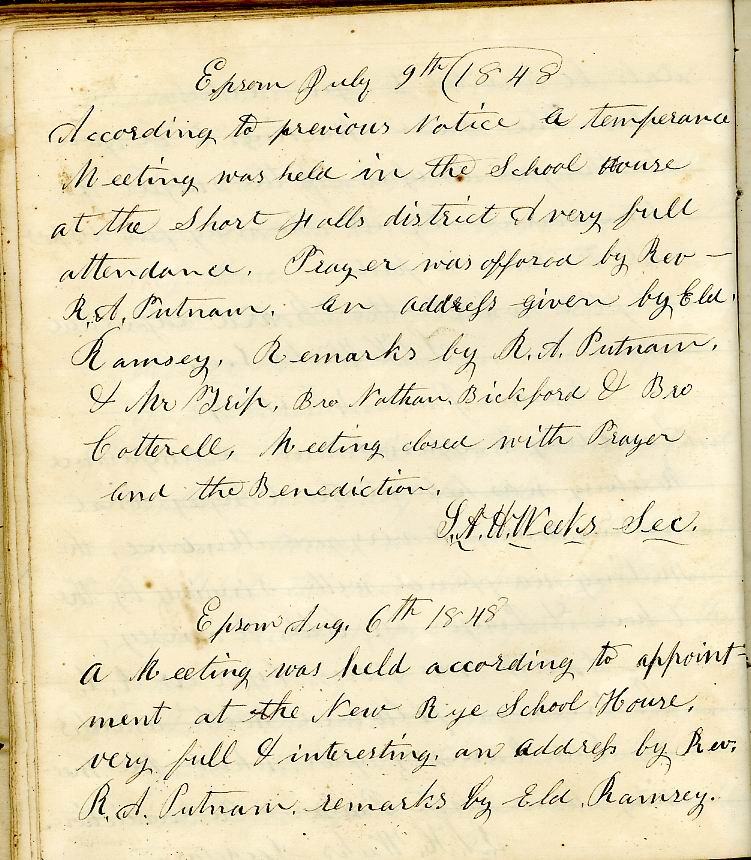 Epsom July 9th (1848
According to previous Notice a temperance
Meeting was held in the School House
at the Short Falls district A very full
attendance. Prayer was offored by Rev —
R. A. Putnam. An address given by Eld.
Ramsey. Remarks by R. A. Putnam,
& Mr Trip, Bro Nathan Bickford & Bro
Cotterell, Meeting closed with Prayer
and the Benediction.
S. A. H. Weeks Sec.
Epsom Aug. 6th 1848
A Meeting was held according to appoint=
ment at the New Rye School House,
very full & interesting. an address by Rev.
R. A. Putnam. remarks by Eld. Ramsey.